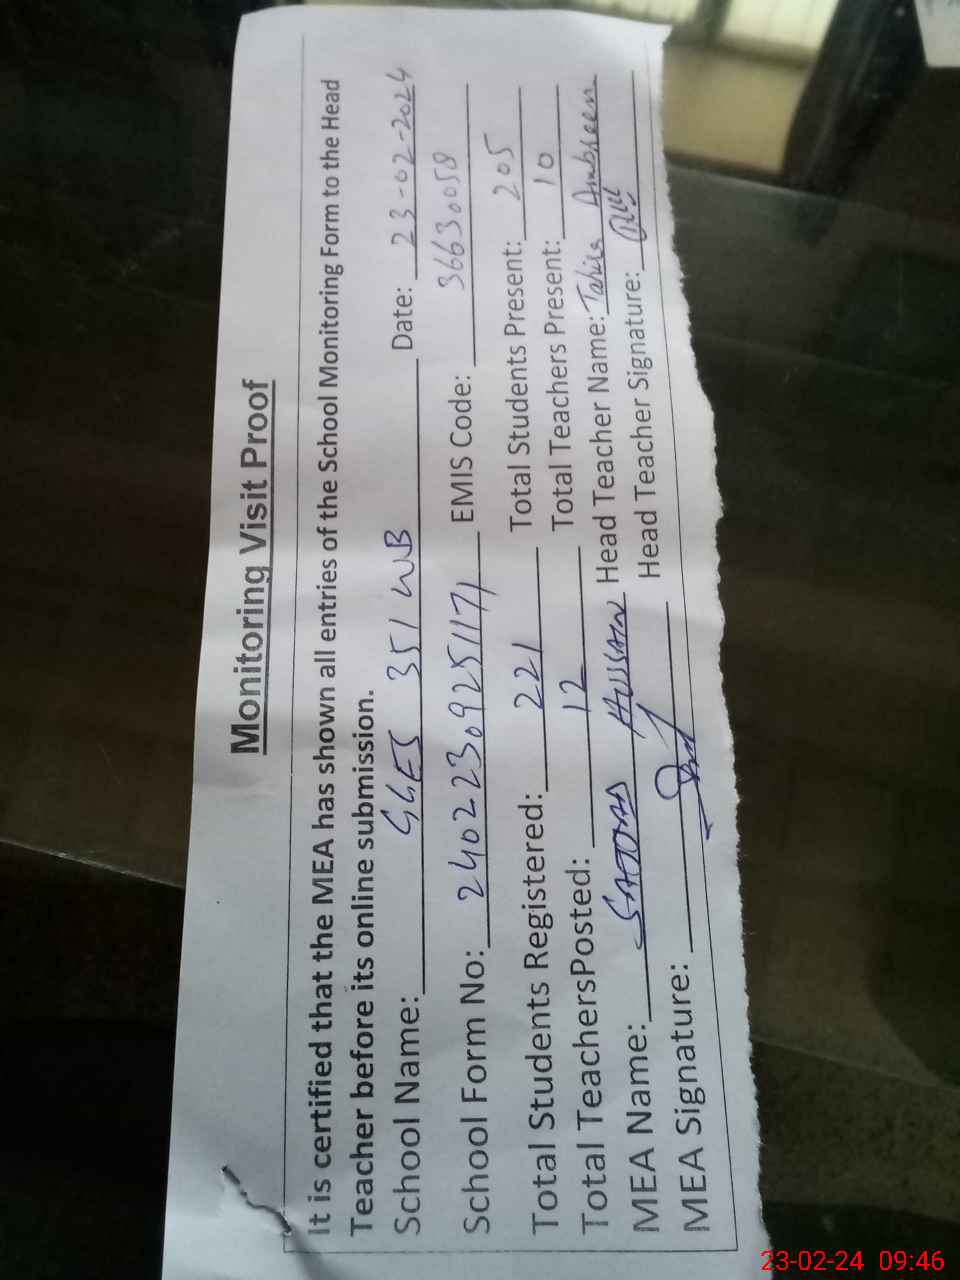 Monitoring Visit Proof
It is certified that the MEA has shown all entries of the School Monitoring Form to the Head
Teacher before its online submission.
School Name: GGES 351 WB Date: 23-02-2024
School Form No: 240223092511171 EMIS Code: 36630058
Total Students Registered: 221 Total Students Present: 205
Total TeachersPosted: 12 Total Teachers Present: 10
MEA Name: SAJJAD HUSSAIN Head Teacher Name: Tahira Ambreen
MEA Signature: Head Teacher Signature:
23-02-24 09:46